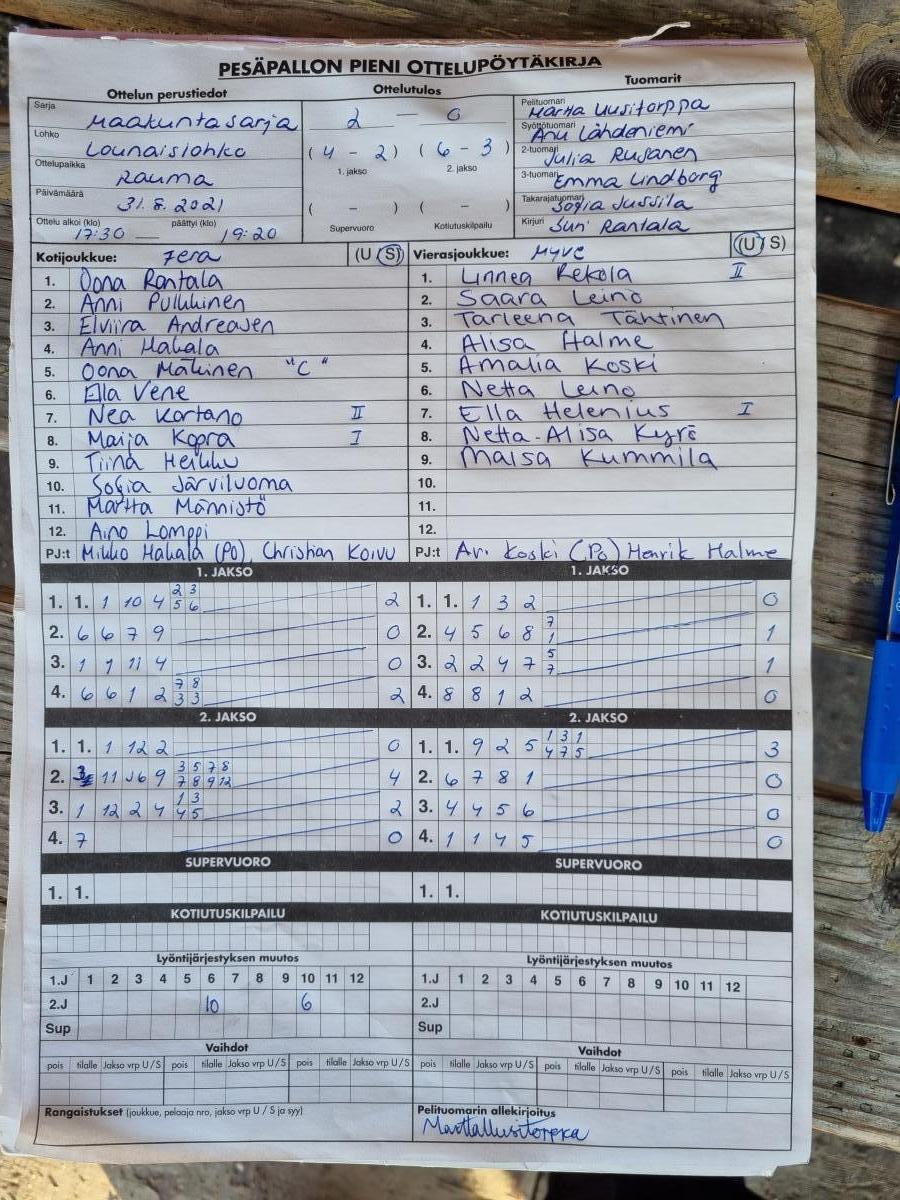 PESÄPALLON PIENI OTTELUPÖYTÄKIRJA
Ottelun perustiedot
Ottelutulos
Tuomarit
Sarja Maakuntasarja
Lohko Lounaislohko
Ottelupaikka Rauma
Päivämäärä 31.8.2021
Ottelu alkoi (klo) päättyi (klo)
17:30 — 19:20
2 — 0
(4 - 2) (6 - 3)
1. jakso 2. jakso
( - ) ( - )
Supervuoro Kotiutuskilpailu
Pelituomari Martta Uusitorppa
Syöttötuomari Anu Lähdeniemi
2-tuomari Julia Rusanen
3-tuomari Emma Lindborg
Takarajatuomari Sofia Jussila
Kirjuri Suri Rantala
Kotijoukkue: Fera (U S)
1. Oona Rantala
2. Anni Pulkkinen
3. Elviira Andreasen
4. Anni Hakala
5. Oona Mäkinen "C"
6. Ella Vene
7. Nea Kortano II
8. Maija Kopra I
9. Tiina Heikku
10. Sofia Järviluoma
11. Martta Männistö
12. Aino Lomppi
PJ:t Mikko Hakala (PO), Christian Koivu
Vierasjoukkue: MyVe (U S)
1. Linnea Rekola II
2. Saara Leino
3. Tarleena Tähtinen
4. Alisa Halme
5. Amalia Koski
6. Netta Leino
7. Ella Helenius I
8. Netta-Alisa Kyrö
9. Maisa Kummila
10.
11.
12.
PJ:t Ari Koski (PO) Henrik Halme
1. JAKSO
1. 1. 1 10 4 2 3 2
5 6
2. 6 6 7 9 0
3. 1 1 11 4 0
4. 6 6 1 2 7 8 2
3 3
1. JAKSO
1. 1. 1 3 2 0
2. 4 5 6 8 7 1
1
3. 2 2 4 7 5 1
7
4. 8 8 1 2 0
2. JAKSO
1. 1. 1 12 2 0
2. 11 9 3 5 7 8 4
7 8 9 12
3. 1 12 2 4 1 3 2
4 5
4. 7 0
2. JAKSO
1. 1. 9 2 5 1 3 1 3
4 7 5
2. 6 7 8 1 0
3. 4 4 5 6 0
4. 1 1 4 5 0
SUPERVUORO
1. 1.
SUPERVUORO
1. 1.
KOTIUTUSKILPAILU
KOTIUTUSKILPAILU
Lyöntijärjestyksen muutos
1.J 1 2 3 4 5 6 7 8 9 10 11 12
2.J 10 6
Sup
Lyöntijärjestyksen muutos
1.J 1 2 3 4 5 6 7 8 9 10 11 12
2.J
Sup
Vaihdot
pois tilalle Jakso vrp U/S pois tilalle Jakso vrp U/S pois tilalle Jakso vrp U/S
Vaihdot
pois tilalle Jakso vrp U/S pois tilalle Jakso vrp U/S pois tilalle Jakso vrp U/S
Rangaistukset (joukkue, pelaaja nro, jakso vrp U / S ja syy)
Pelituomarin allekirjoitus
Martta Uusitorppa